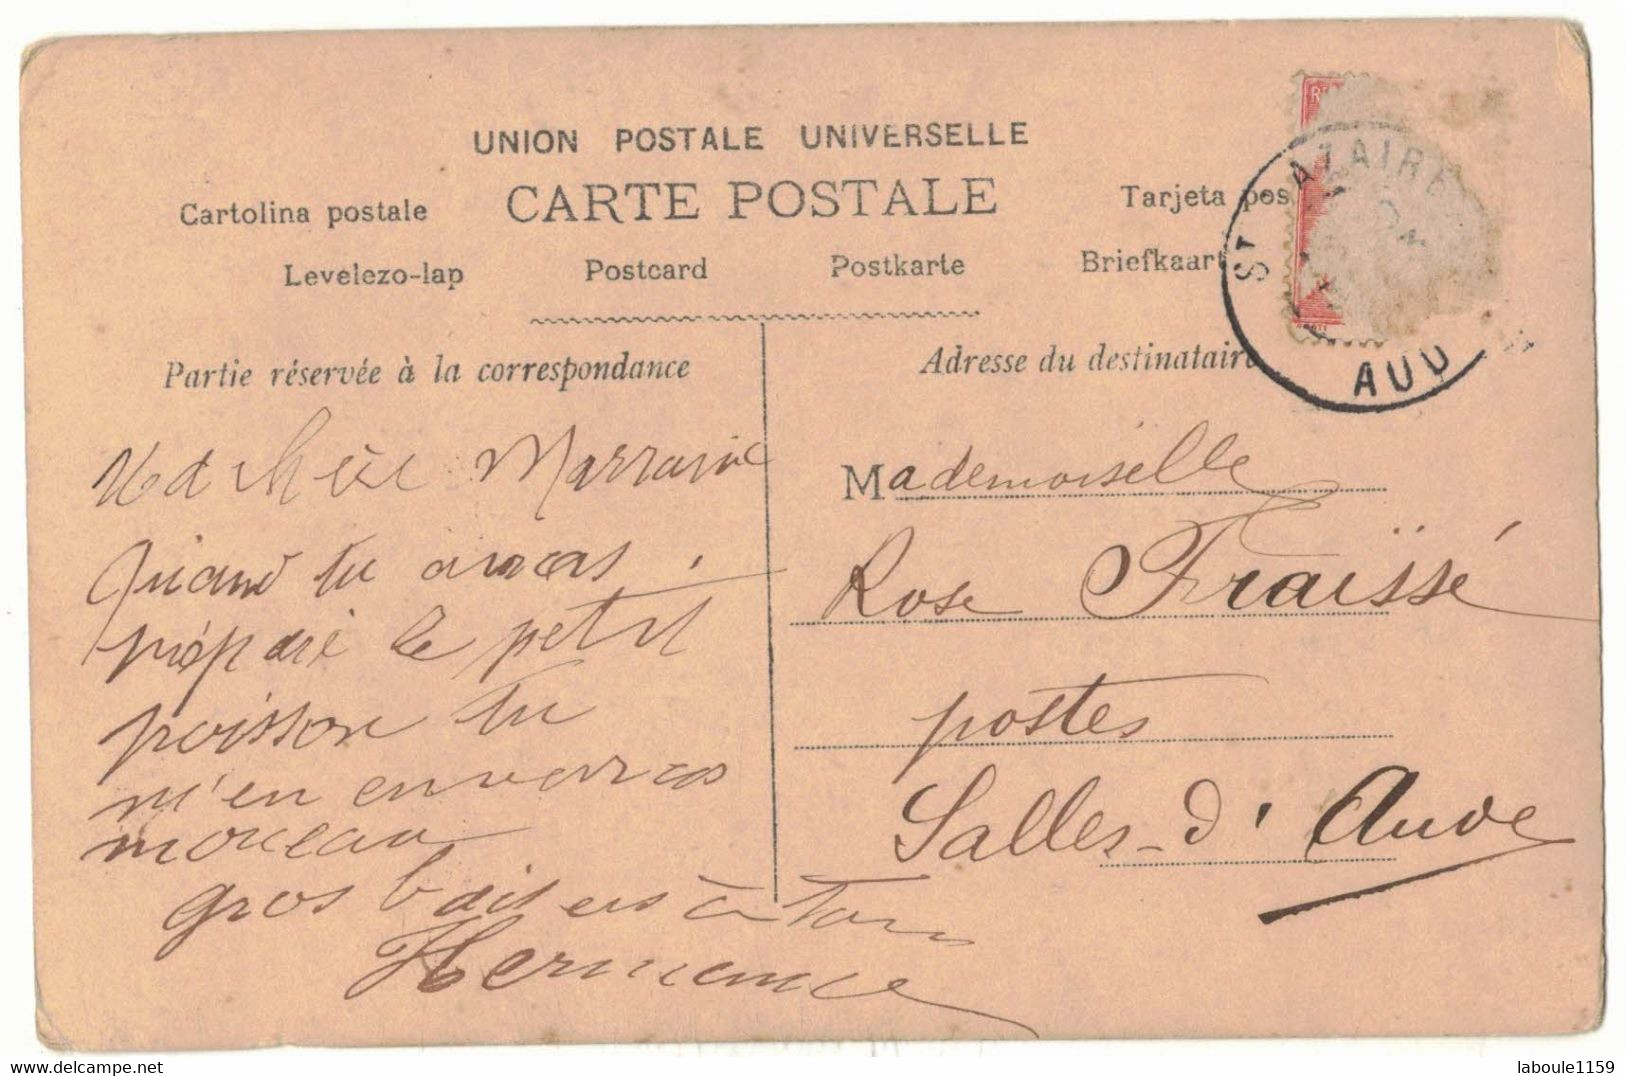 UNION POSTALE UNIVERSELLE
CARTE POSTALE
Cartolina postale
Tarjeta pos
Levelezo-lap
Postcard
Postkarte
Briefkaart
Partie réservée à la correspondance
Adresse du destinataire
ST AZAIRE
AUD
Marraine
Quand tu auras
préparé le petit
poisson tu
m'en enverras
morceau
gros baisers à tous
Hermance
Mademoiselle
Rose Fraïssé
postes
Salles-d'Aude
delcampe.net
laboule1159